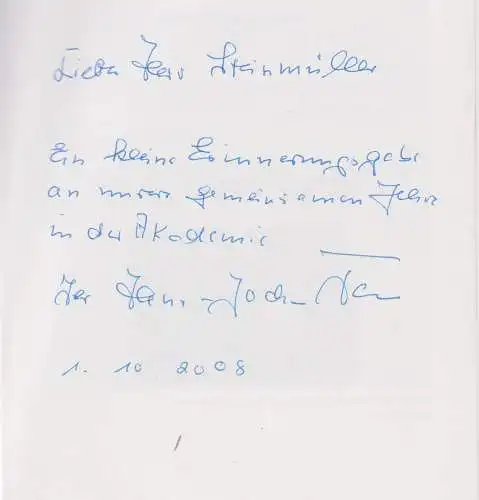 Lieber Herr Steinmüller
Ein kleine Erinnerungsgabe
an unsere gemeinsamen Jahre
in der Akademie
Ihr Hans-Joch
1. 10 2008